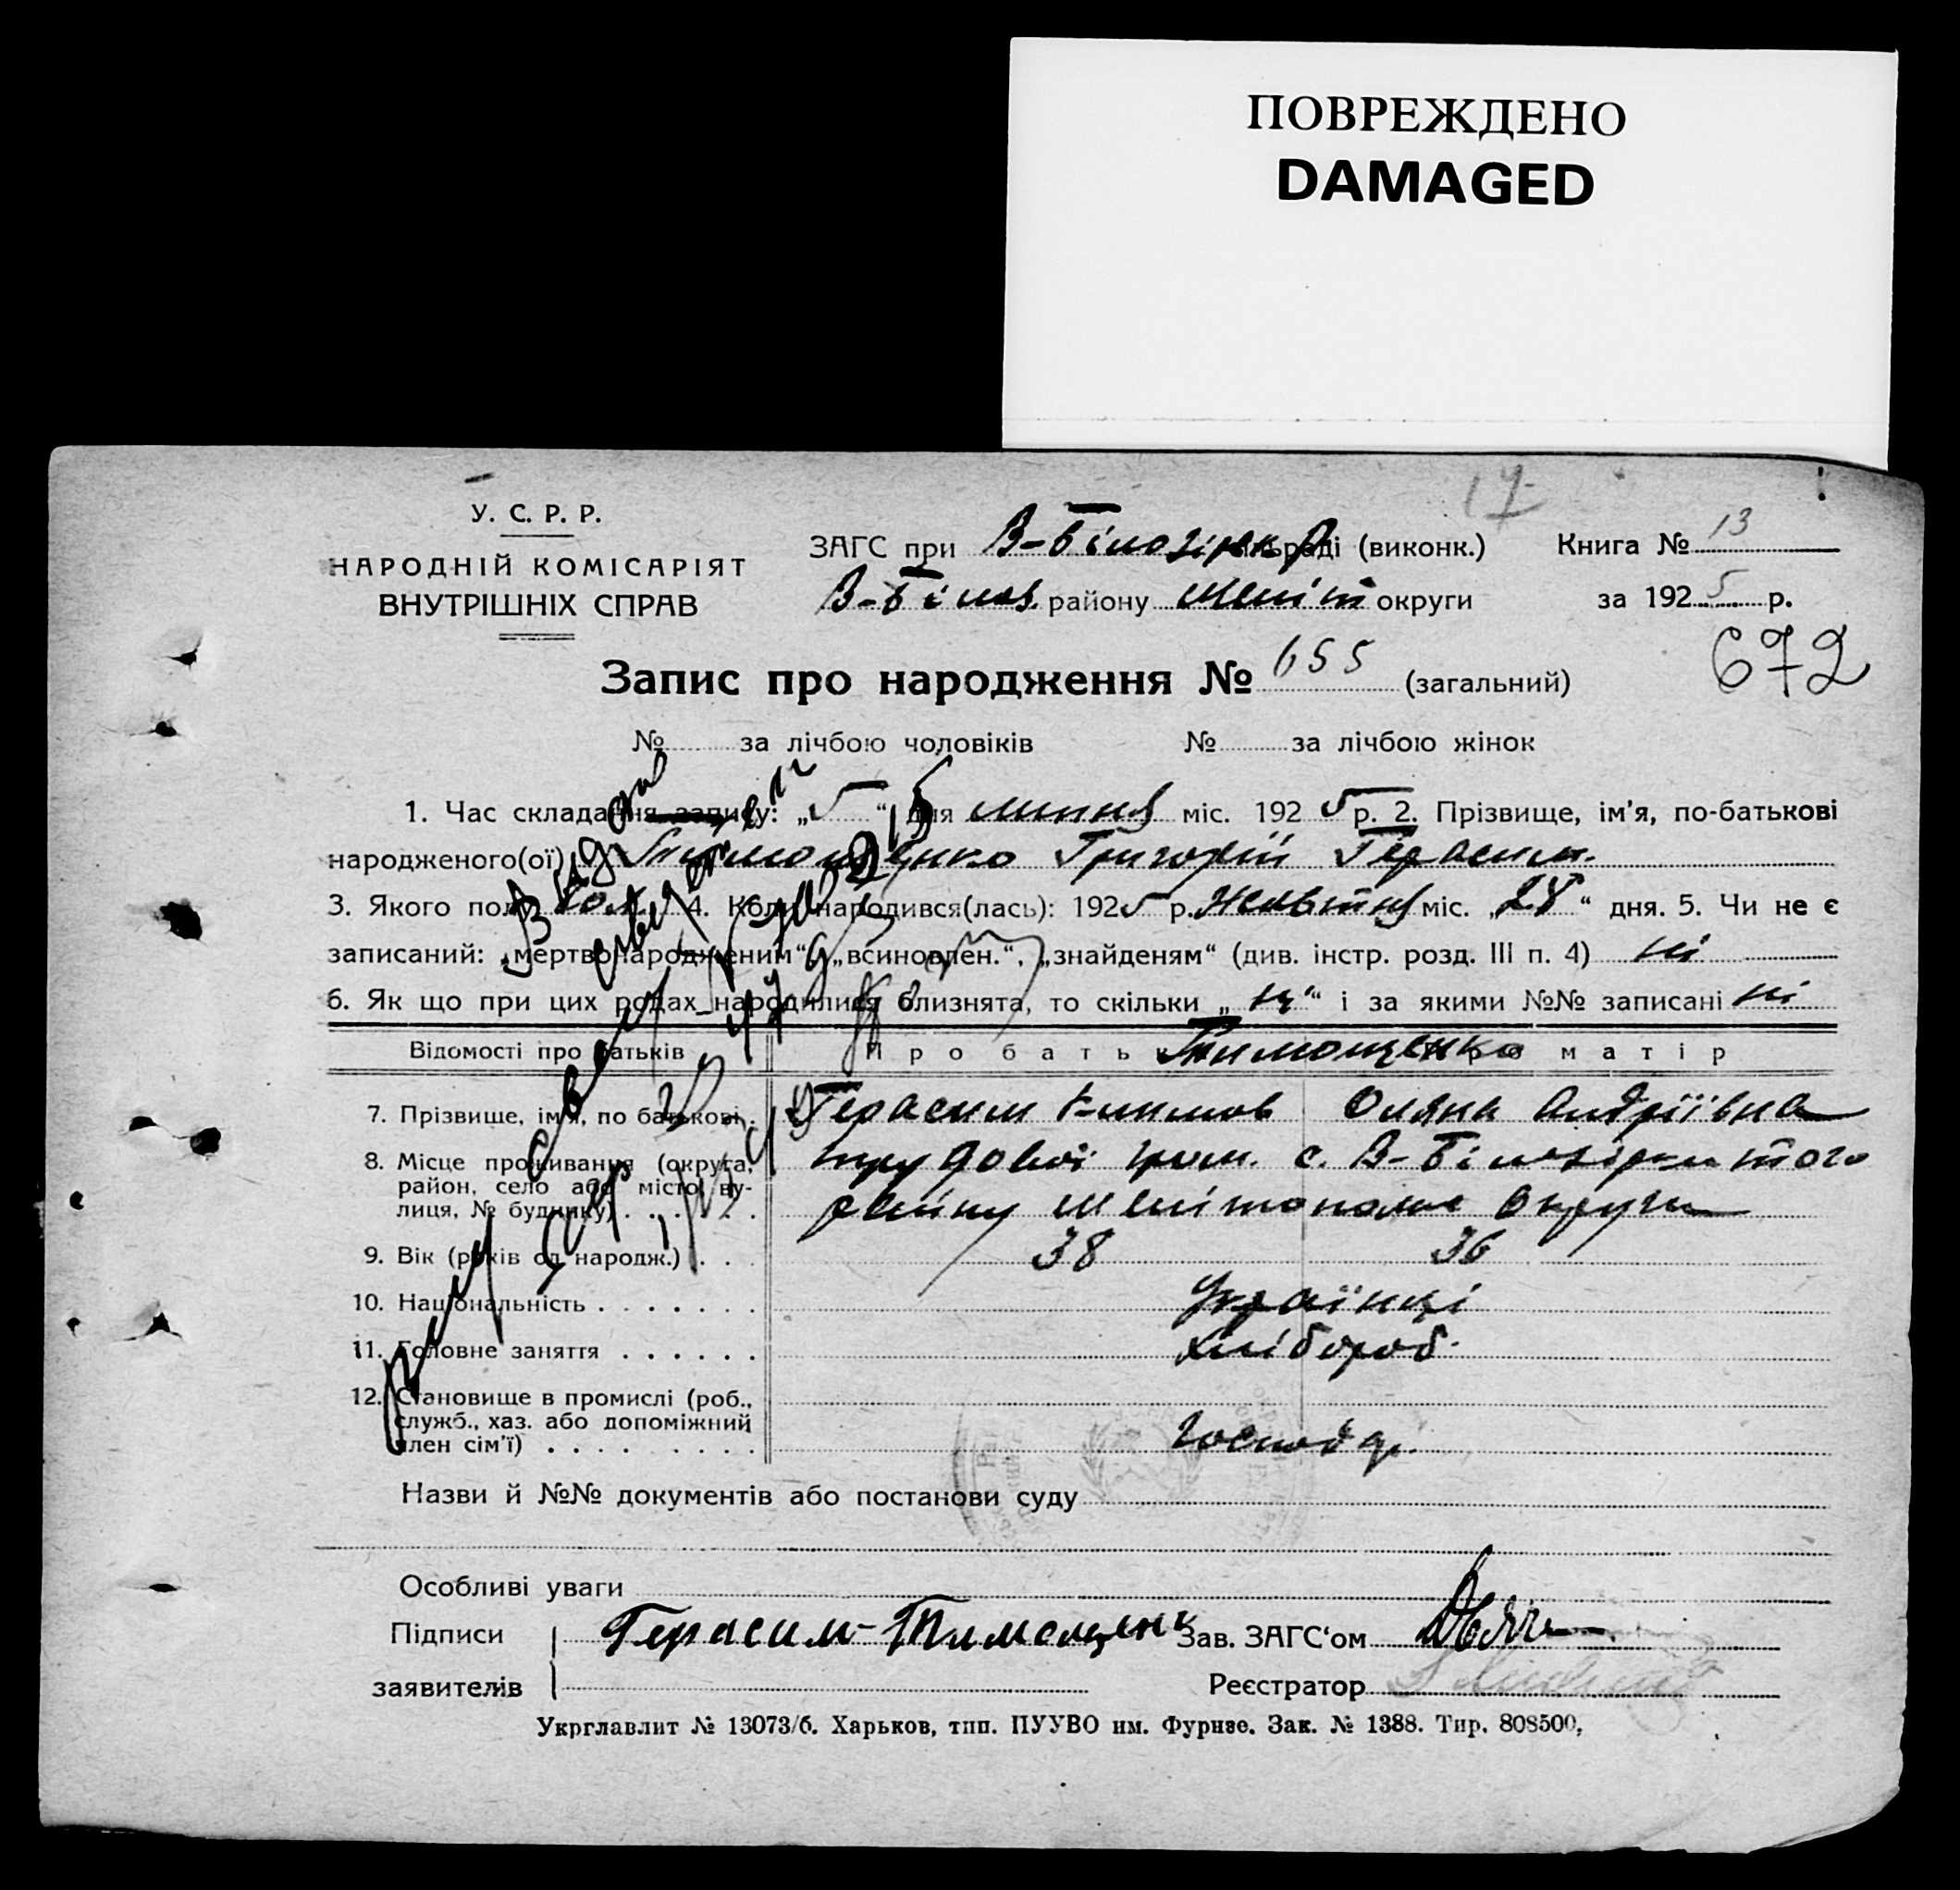 ПОВРЕЖДЕНО
DAMAGED
17
У. С. Р. Р.
НАРОДНІЙ КОМІСАРІЯТ
ВНУТРІШНІХ СПРАВ
ЗАГС при В-Білозірк раді (виконк.) Книга № 13
В-Біloз. району Меліт округи за 1925 р.
Запис про народження № 655 (загальний) 672
№ за лічбою чоловіків № за лічбою жінок
1. Час складання запису: „5“ дня липня міс. 1925 р. 2. Прізвище, ім'я, по-батькові
народженого(ої) Тимощенко Григорій Герасим.
3. Якого полу чол. 4. Коли народився(лась): 1925 р. Жовтня міс. „28“ дня. 5. Чи не є
записаний: „мертвонародженим“, „всиновлен.“, „знайденям“ (див. інстр. розд. III п. 4) ні
6. Як що при цих родах народилися близнята, то скільки „ні“ і за якими №№ записані ні
Відомості про батьків Про батька Тимощенко Про матір
7. Прізвище, ім'я, по батькові . Герасим Климов Оляна Андріївна
8. Місце проживання (округа, трудової гром. с. В-Білозірки того
район, село або місто, ву-
лиця, № будинку) . . . . . району Мелітопольс округи
9. Вік (років од народж.) . . . 38 36
10. Національність . . . . . . . Українці
11. Головне заняття . . . . . . хлібороб.
12. Становище в промислі (роб.,
служб., хаз. або допоміжний
член сім'ї) . . . . . . . . . Господар.
Назви й №№ документів або постанови суду
Особливі уваги
Підписи Герасим Тимощенк Зав. ЗАГС'ом
заявителів Реєстратор
Укрглавлит № 13073/б. Харьков, тип. ПУУВО им. Фрунзе. Зак. № 1388. Тир. 808500,